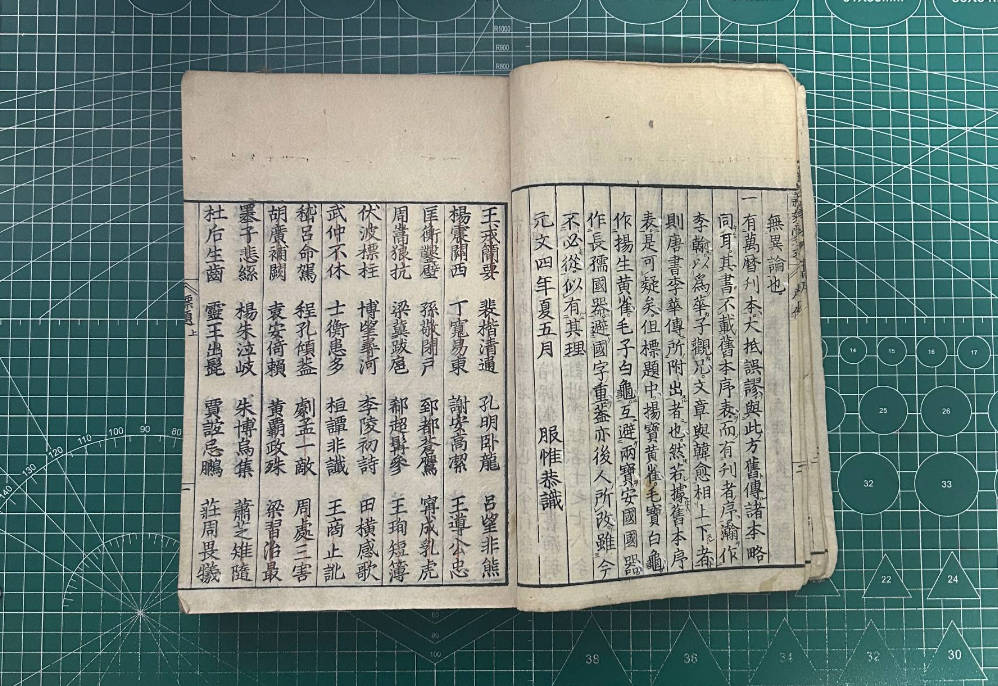 無異論也
一有萬曆刊本大抵誤謬與此方舊傳諸本略
同耳其書不載舊本序表而有利者序瀚作
李翰以爲華子觀其文章與韓愈相上下者
則唐書李華傳所附出者也然若據舊本序
表是可疑矣但標題中揚寶黃雀毛寶白龜
作揚生黃雀毛子白龜互避兩寶安國國器
作長孺國器避國字重蓋亦後人所改雖今
不必從似有其理
元文四年夏五月 服惟恭識
王戎簡要 裴楷清通 孔明臥龍 呂望非熊
楊震關西 丁寬易東 謝安高潔 王導公忠
匡衡鑿壁 孫敬閉戶 郅都蒼鷹 甯成乳虎
周嵩狼抗 梁冀跋扈 郗超髯參 王珣短簿
伏波標柱 博望尋河 李陵初詩 田橫感歌
武仲不休 士衡患多 桓譚非讖 王商止訛
嵇呂命駕 程孔傾蓋 劇孟一敵 周處三害
胡廣補闕 袁安倚賴 黃霸政殊 梁習治最
墨子悲絲 楊朱泣岐 朱博烏集 蕭芝雉隨
杜后生齒 靈王出髭 賈誼忌鵩 莊周畏犧
標題上 一